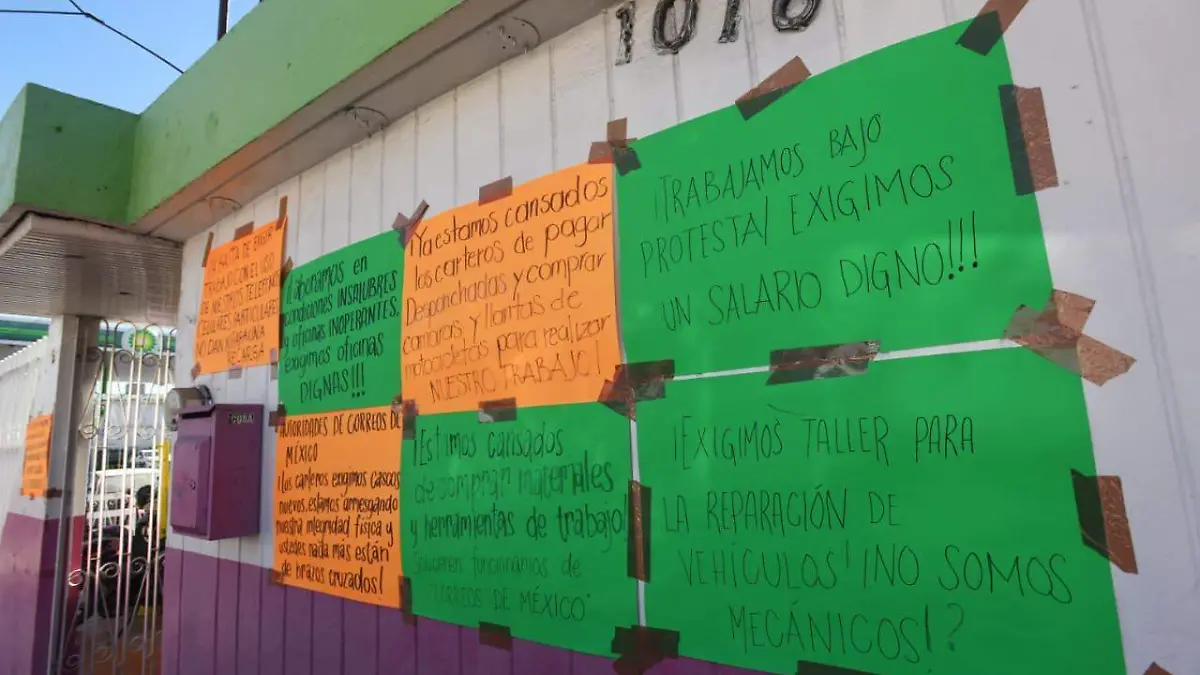 1018
LA HALTA DE EXIGIR
TRABAJO CON EL USO
DE NUESTROS TELEFONOS
CELULARES PARTICULARES
NO DAN NI PARA UNA
RECARGA
¡Laboramos en
condiciones INSALUBRES
y oficinas INOPERANTES,
exigimos oficinas
DIGNAS!!!
¡Ya estamos cansados
los carteros de pagar
Desponchadas y comprar
camaras, y llantas de
motocicletas para realizar
NUESTRO TRABAJO!
¡TRABAJAMOS BAJO
PROTESTA/ EXIGIMOS
UN SALARIO DIGNO!!!
AUTORIDADES DE CORREOS DE
MÉXICO
¡Los carteros exigimos cascos
nuevos, estamos arriesgando
nuestra integridad física y
ustedes nada más están
de brazos cruzados!
¡Estamos cansados
de comprar materiales
y herramientas de trabajo!
funcionarios de
"CORREOS DE MÉXICO"
¡EXIGIMOS TALLER PARA
LA REPARACIÓN DE
VEHÍCULOS! ¡NO SOMOS
MECÁNICOS!?
bp